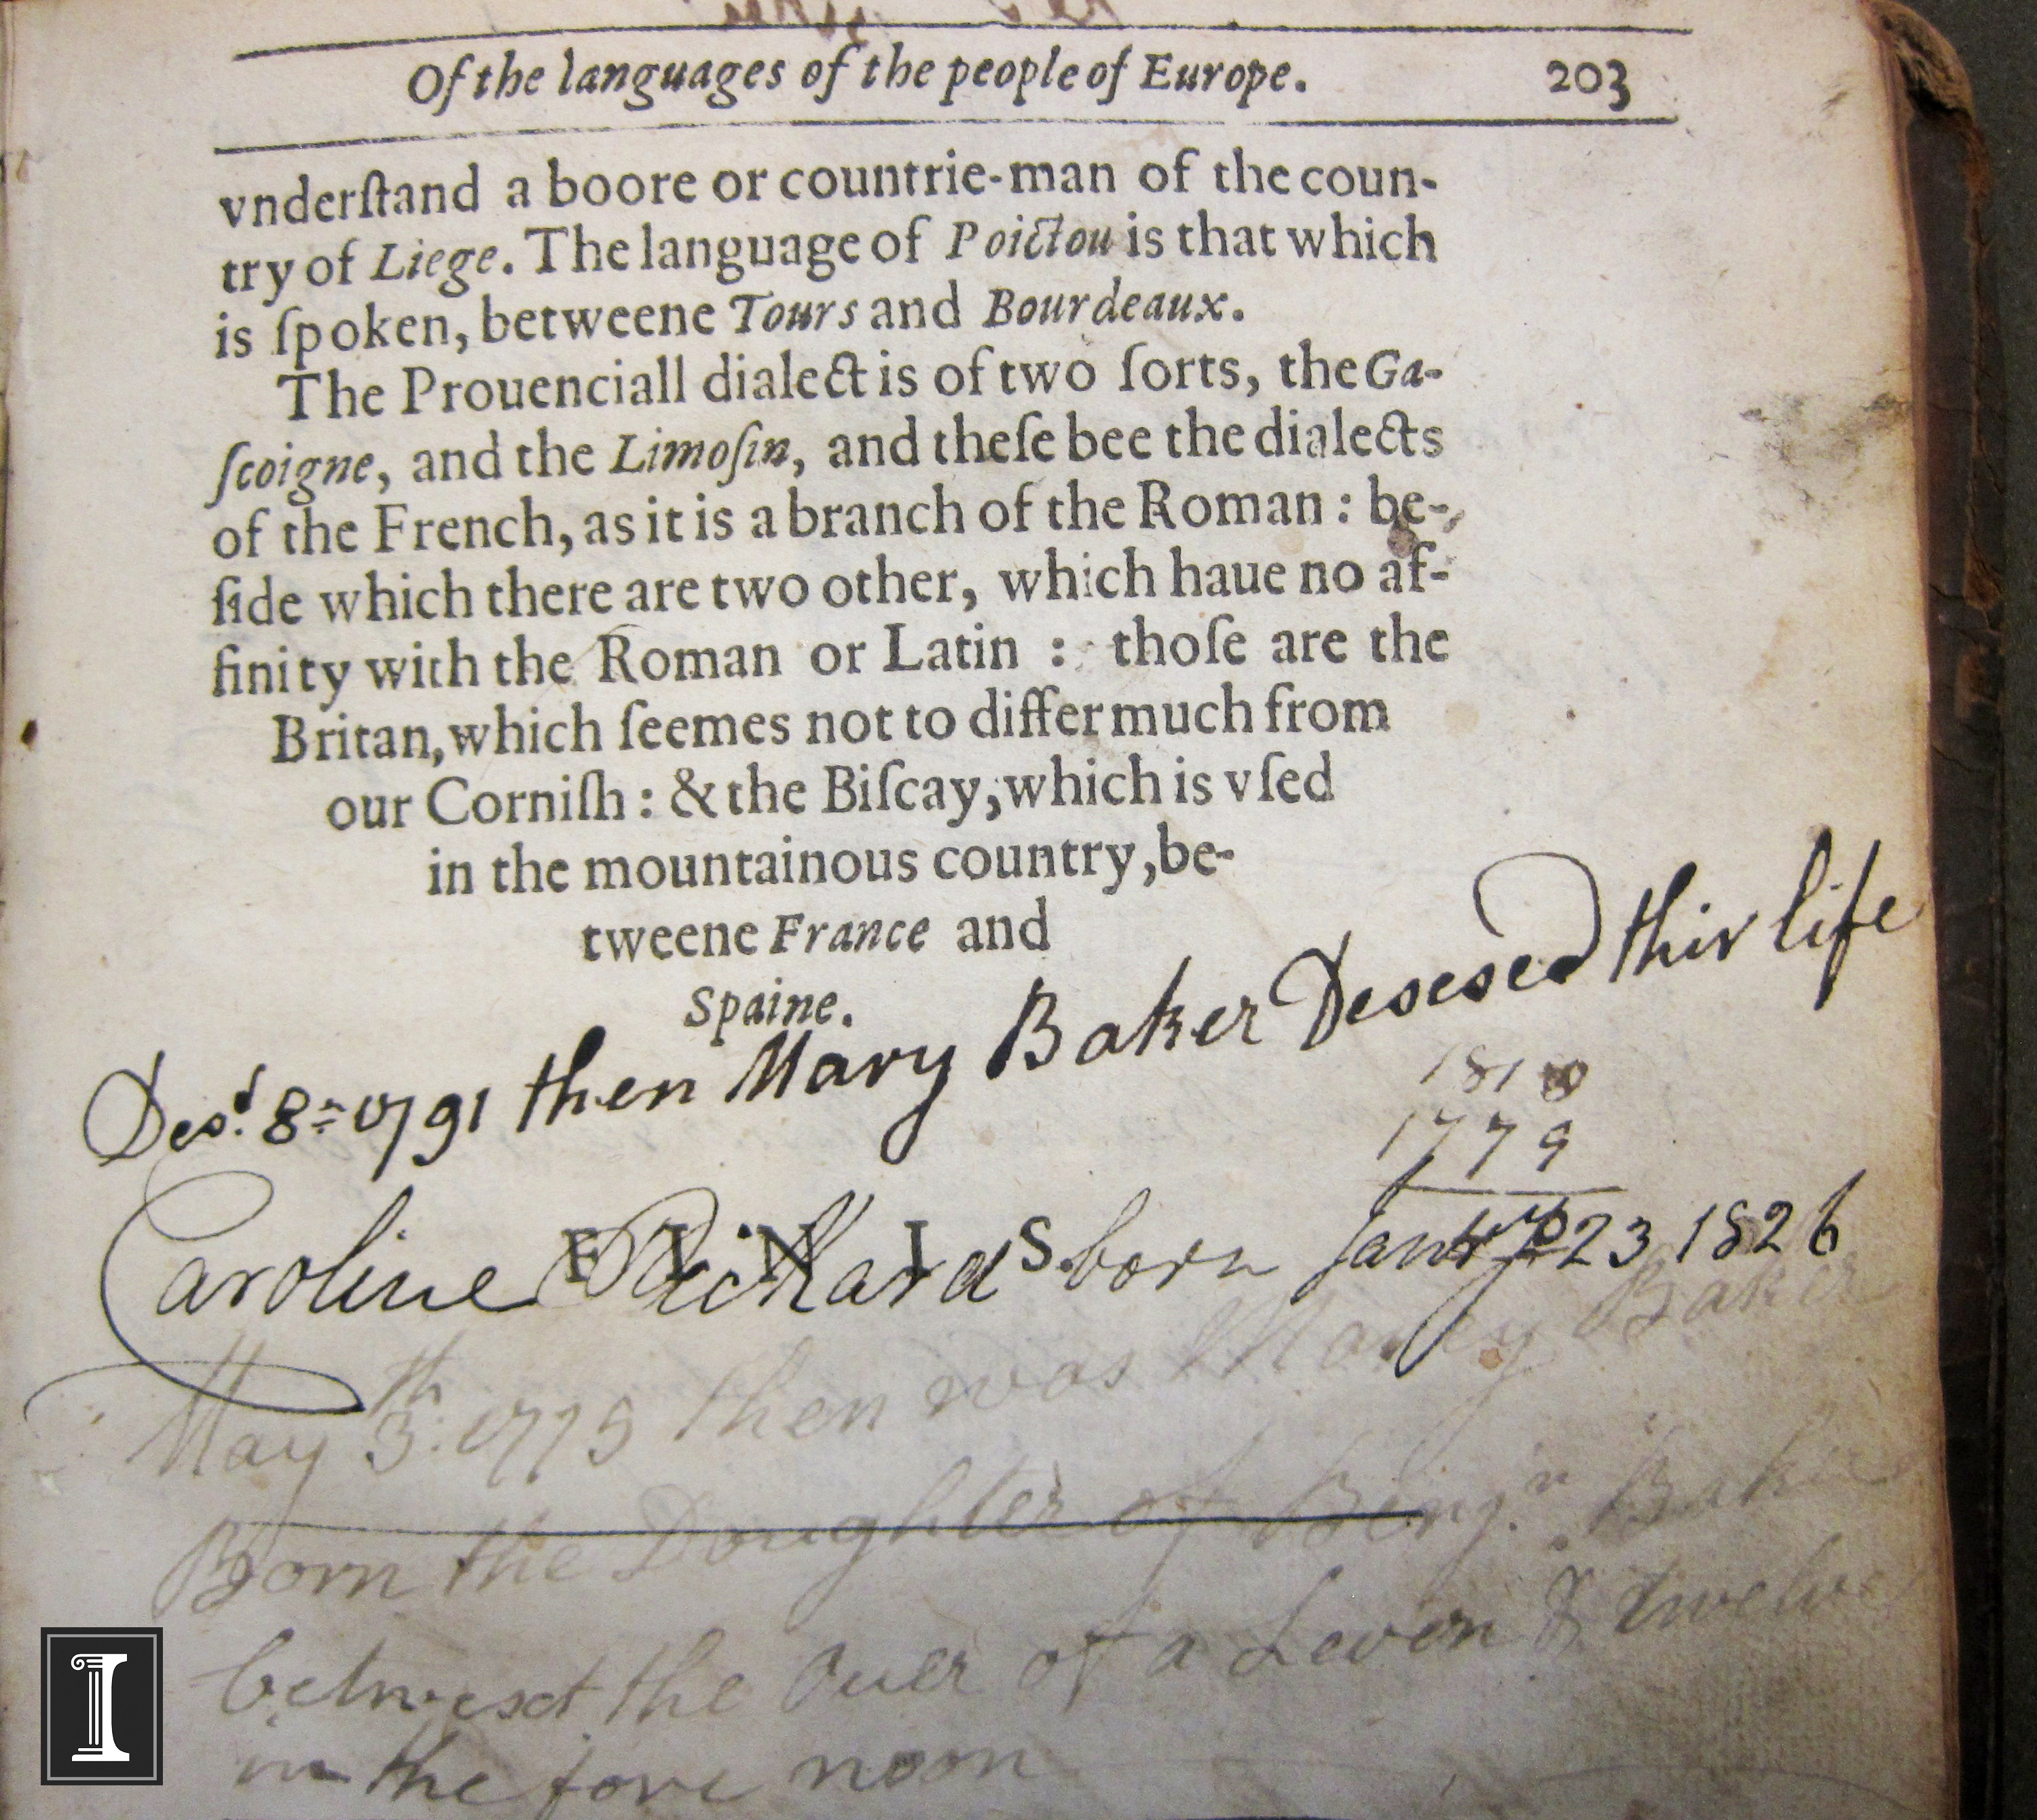 Of the languages of the people of Europe. 203
vnderſtand a boore or countrie-man of the coun-
try of Liege. The language of Poictou is that which
is ſpoken, betweene Tours and Bourdeaux.
The Prouenciall dialect is of two ſorts, the Ga-
ſcoigne, and the Limoſin, and theſe bee the dialects
of the French, as it is a branch of the Roman : be-
ſide which there are two other, which haue no af-
finity with the Roman or Latin : thoſe are the
Britan, which ſeemes not to differ much from
our Corniſh : & the Biſcay, which is vſed
in the mountainous country, be-
tweene France and
Spaine.
Des.d 8 1791 then Mary Baker Desesed this life
181
1779
FINIS.
Caroline Rickard born 23 1826
May 3th: 1775 then was Marey Baker
Born the Doughter of Benj.n Baker
betwext the Ouer of a Leven & twelve
in the fore noon
I